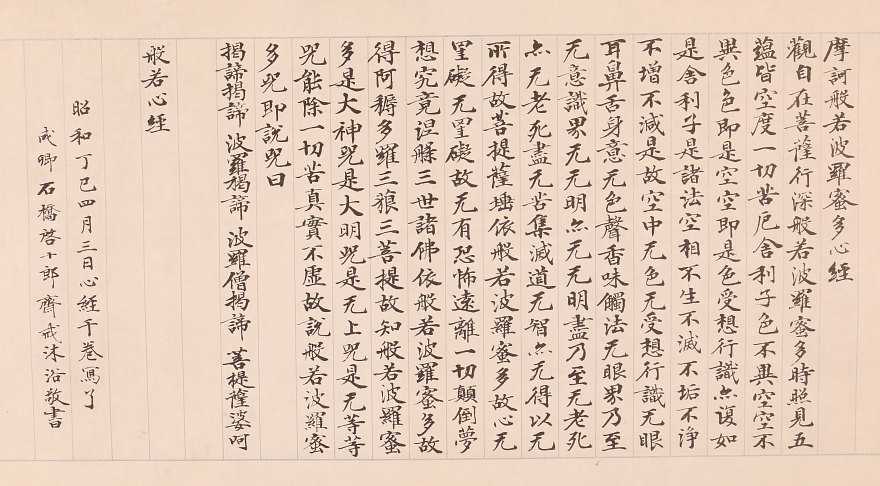 摩訶般若波羅蜜多心経
觀自在菩薩行深般若波羅蜜多時照見五
蕴皆空度一切苦厄舎利子色不異空空不
異色色即是空空即是色受想行識亦復如
是舎利子是諸法空相不生不滅不垢不浄
不增不減是故空中无色无受想行識无眼
耳鼻舌身意无色聲香味觸法无眼界乃至
无意識界无无明亦无无明盡乃至无老死
亦无老死盡无苦集滅道无智亦无得以无
所得故菩提薩埵依般若波羅蜜多故心无
罣礙无罣礙故无有恐怖遠離一切顛倒夢
想究竟涅槃三世諸佛依般若波羅蜜多故
得阿耨多羅三藐三菩提故知般若波羅蜜
多是大神咒是大明咒是无上咒是无等等
咒能除一切苦真實不虛故説般若波羅蜜
多咒即説咒曰
揭諦揭諦 波羅揭諦 波羅僧揭諦 菩提薩婆呵
般若心経
昭和丁巳四月三日心経千卷寫了
成卿 石橋啓十郎 齋戒沐浴敬書